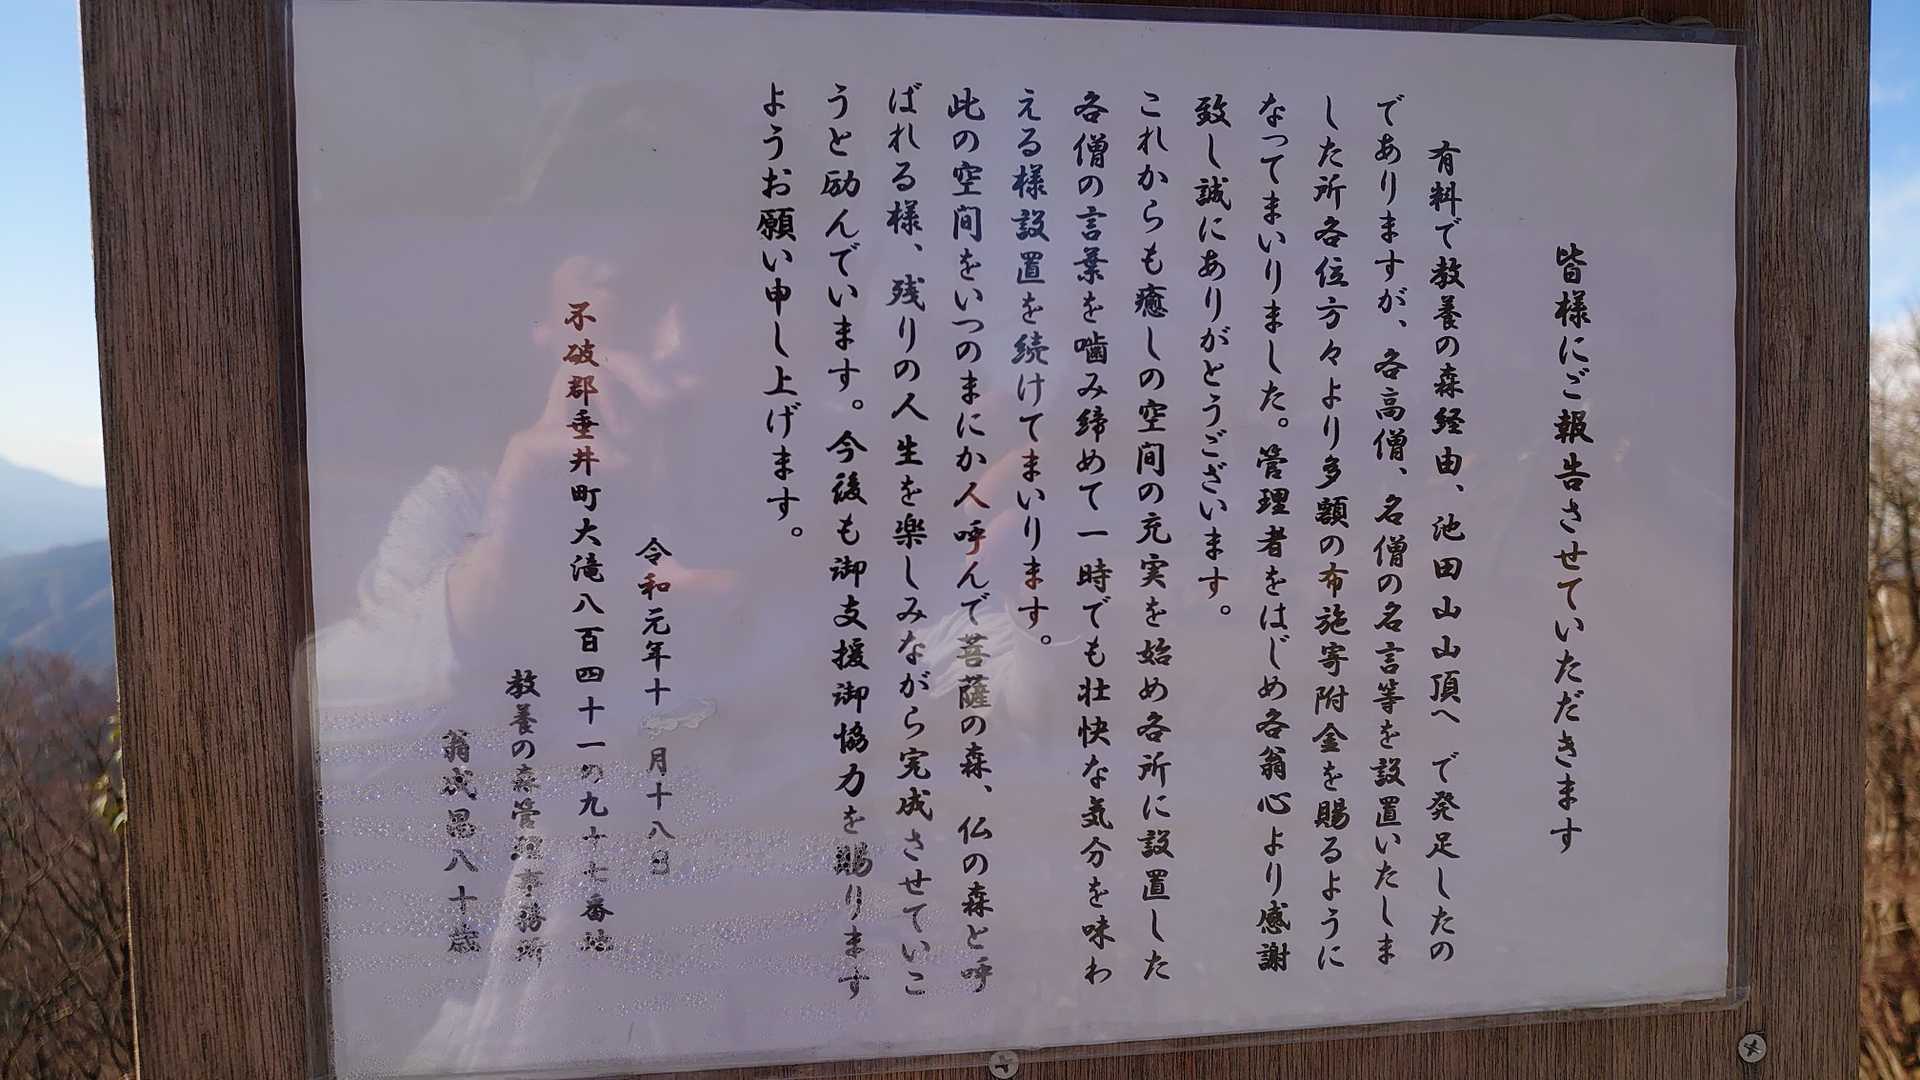 皆様にご報告させていただきます
有料で教養の森経由、池田山山頂へ で発足したの
でありますが、各高僧、名僧の名言等を設置いたしま
した所各位方々より多額の布施寄附金を賜るように
なってまいりました。管理者をはじめ各翁心より感謝
致し誠にありがとうございます。
これからも癒しの空間の充実を始め各所に設置した
各僧の言葉を噛み締めて一時でも壮快な気分を味わ
える様設置を続けてまいります。
此の空間をいつのまにか人呼んで菩薩の森、仏の森と呼
ばれる様、残りの人生を楽しみながら完成させていこ
うと励んでいます。今後も御支援御協力を賜ります
ようお願い申し上げます。
令和元年十 月十八日
不破郡垂井町大滝八百四十一の九十七番地
教養の森管理事務所
翁成昌八十歳